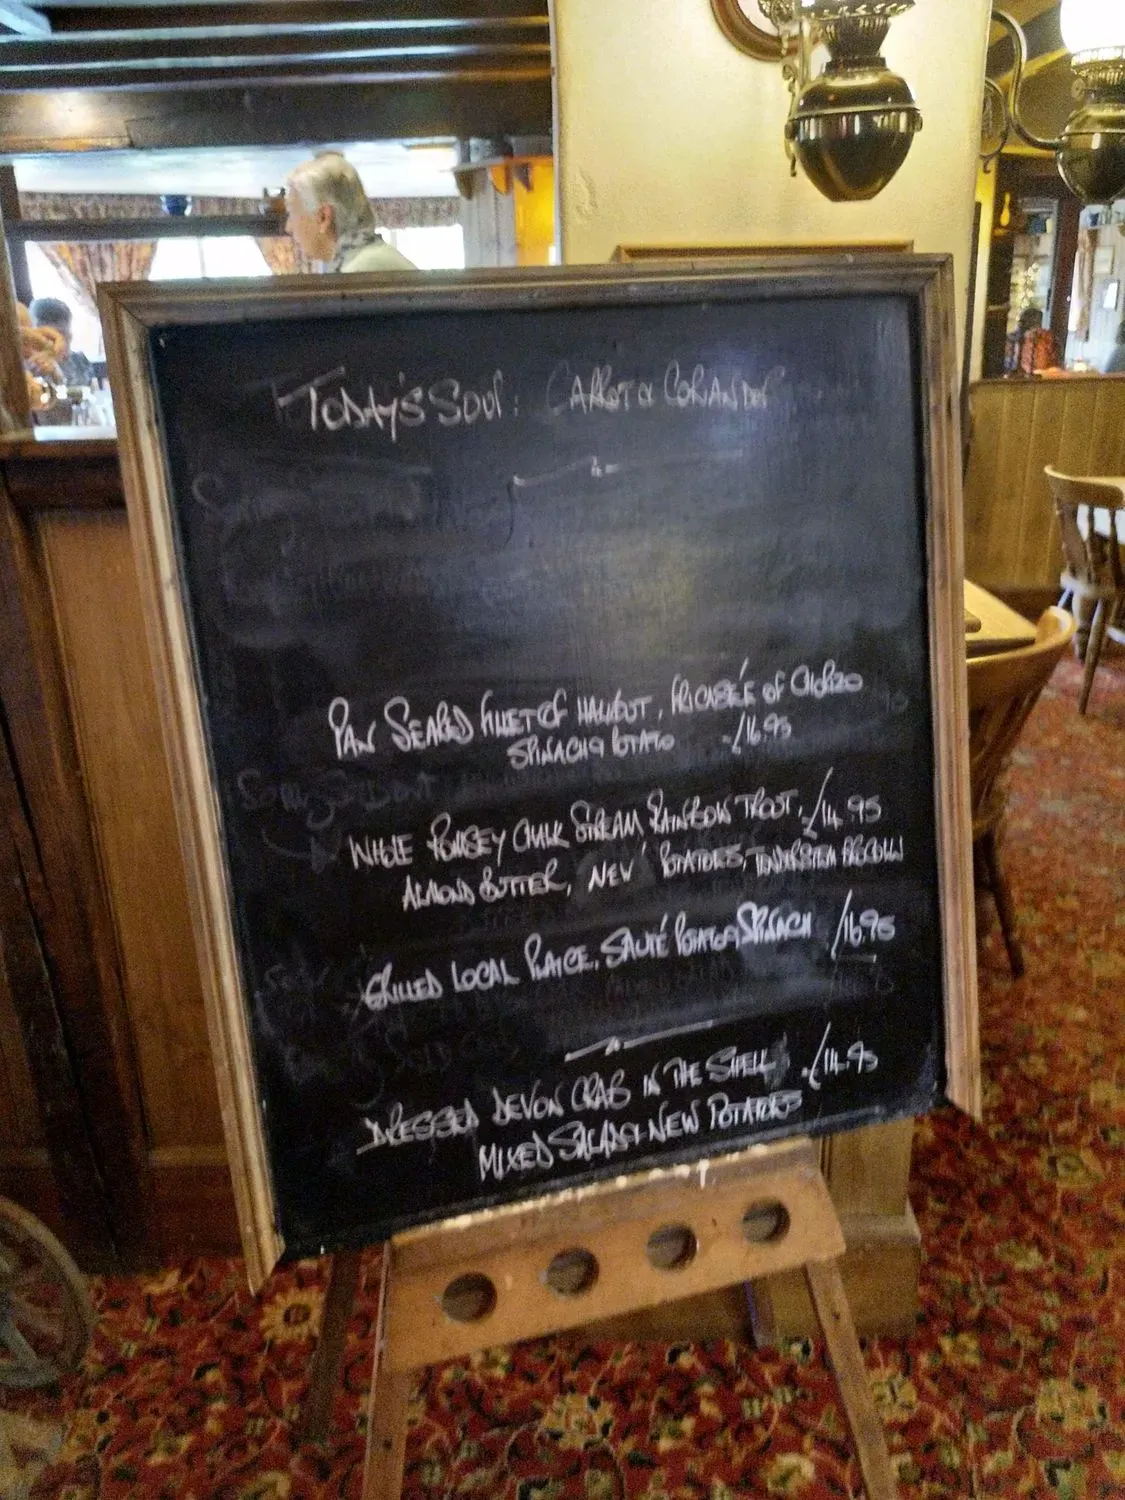 TODAY'S SOUP: CARROT & CORIANDER
PAN SEARED FILLET OF HALIBUT, FRICASÉE OF CHORIZO
SPINACH & POTATO - £16.95
WHOLE ROMSEY CHALK STREAM RAINBOW TROUT, £14.95
ALMOND BUTTER, NEW POTATOES, TENDERSTEM BROCCOLI
GRILLED LOCAL PLAICE, SAUTÉ POTATO & SPINACH £16.95
DRESSED DEVON CRAB IN THE SHELL £14.95
MIXED SALAD & NEW POTATOES